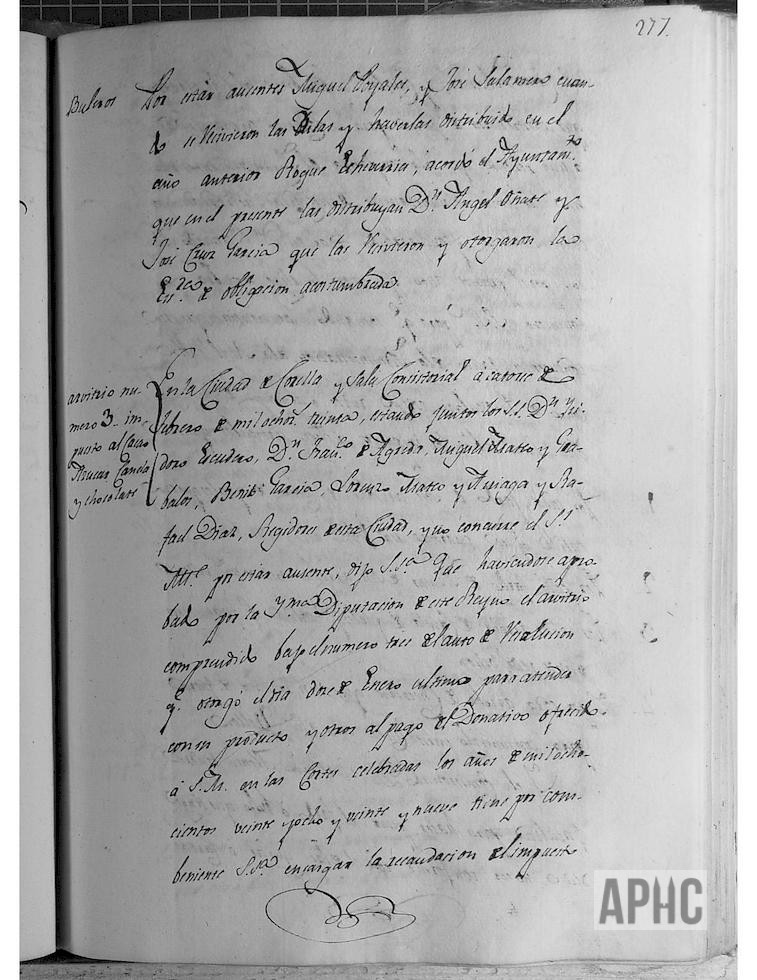 277.
Buleros
Por estar ausentes Miguel Poyales, y José Salamero cuan-
do se recivieron las Bulas y haverlas distribuido en el
año anterior Roque Echeverria, acordó el Ayuntam.to
que en el presente las distribuyan D.n Angel Oñate y
José Cruz Garcia que las recivieron y otorgaron la
Es.ra de obligacion acostumbrada
arvitrio nu-
mero 3 im-
puesto al Cacao
Azucar Canela
y chocolate
En la Ciudad de Corella y Sala Consistorial a catorce de
Febrero de mil ochoc.s treinta, estando juntos los SS. D.n Ysi-
doro Escudero, D.n Fran.co de Agreda, Miguel Mateo y
Benito Garcia, Lorenzo Mateo y y Ra-
fael Diaz, Regidores de esta Ciudad, y no concurre el S.r
Alc.e por estar ausente, dijo S.Sa que haviendose apro-
bado por la Yma Diputacion de este Reyno el arvitrio
comprendido bajo el numero tres del auto de resolucion
q.e otorgó el dia doce de Enero ultimo para atender
con su producto y otros al pago del Donativo ofrecido
á S.M. en las Cortes celebradas los años de mil ocho-
cientos veinte y ocho y veinte y nueve tiene por com-
beniente S.Sa encargar la recaudacion del impuesto
APHC